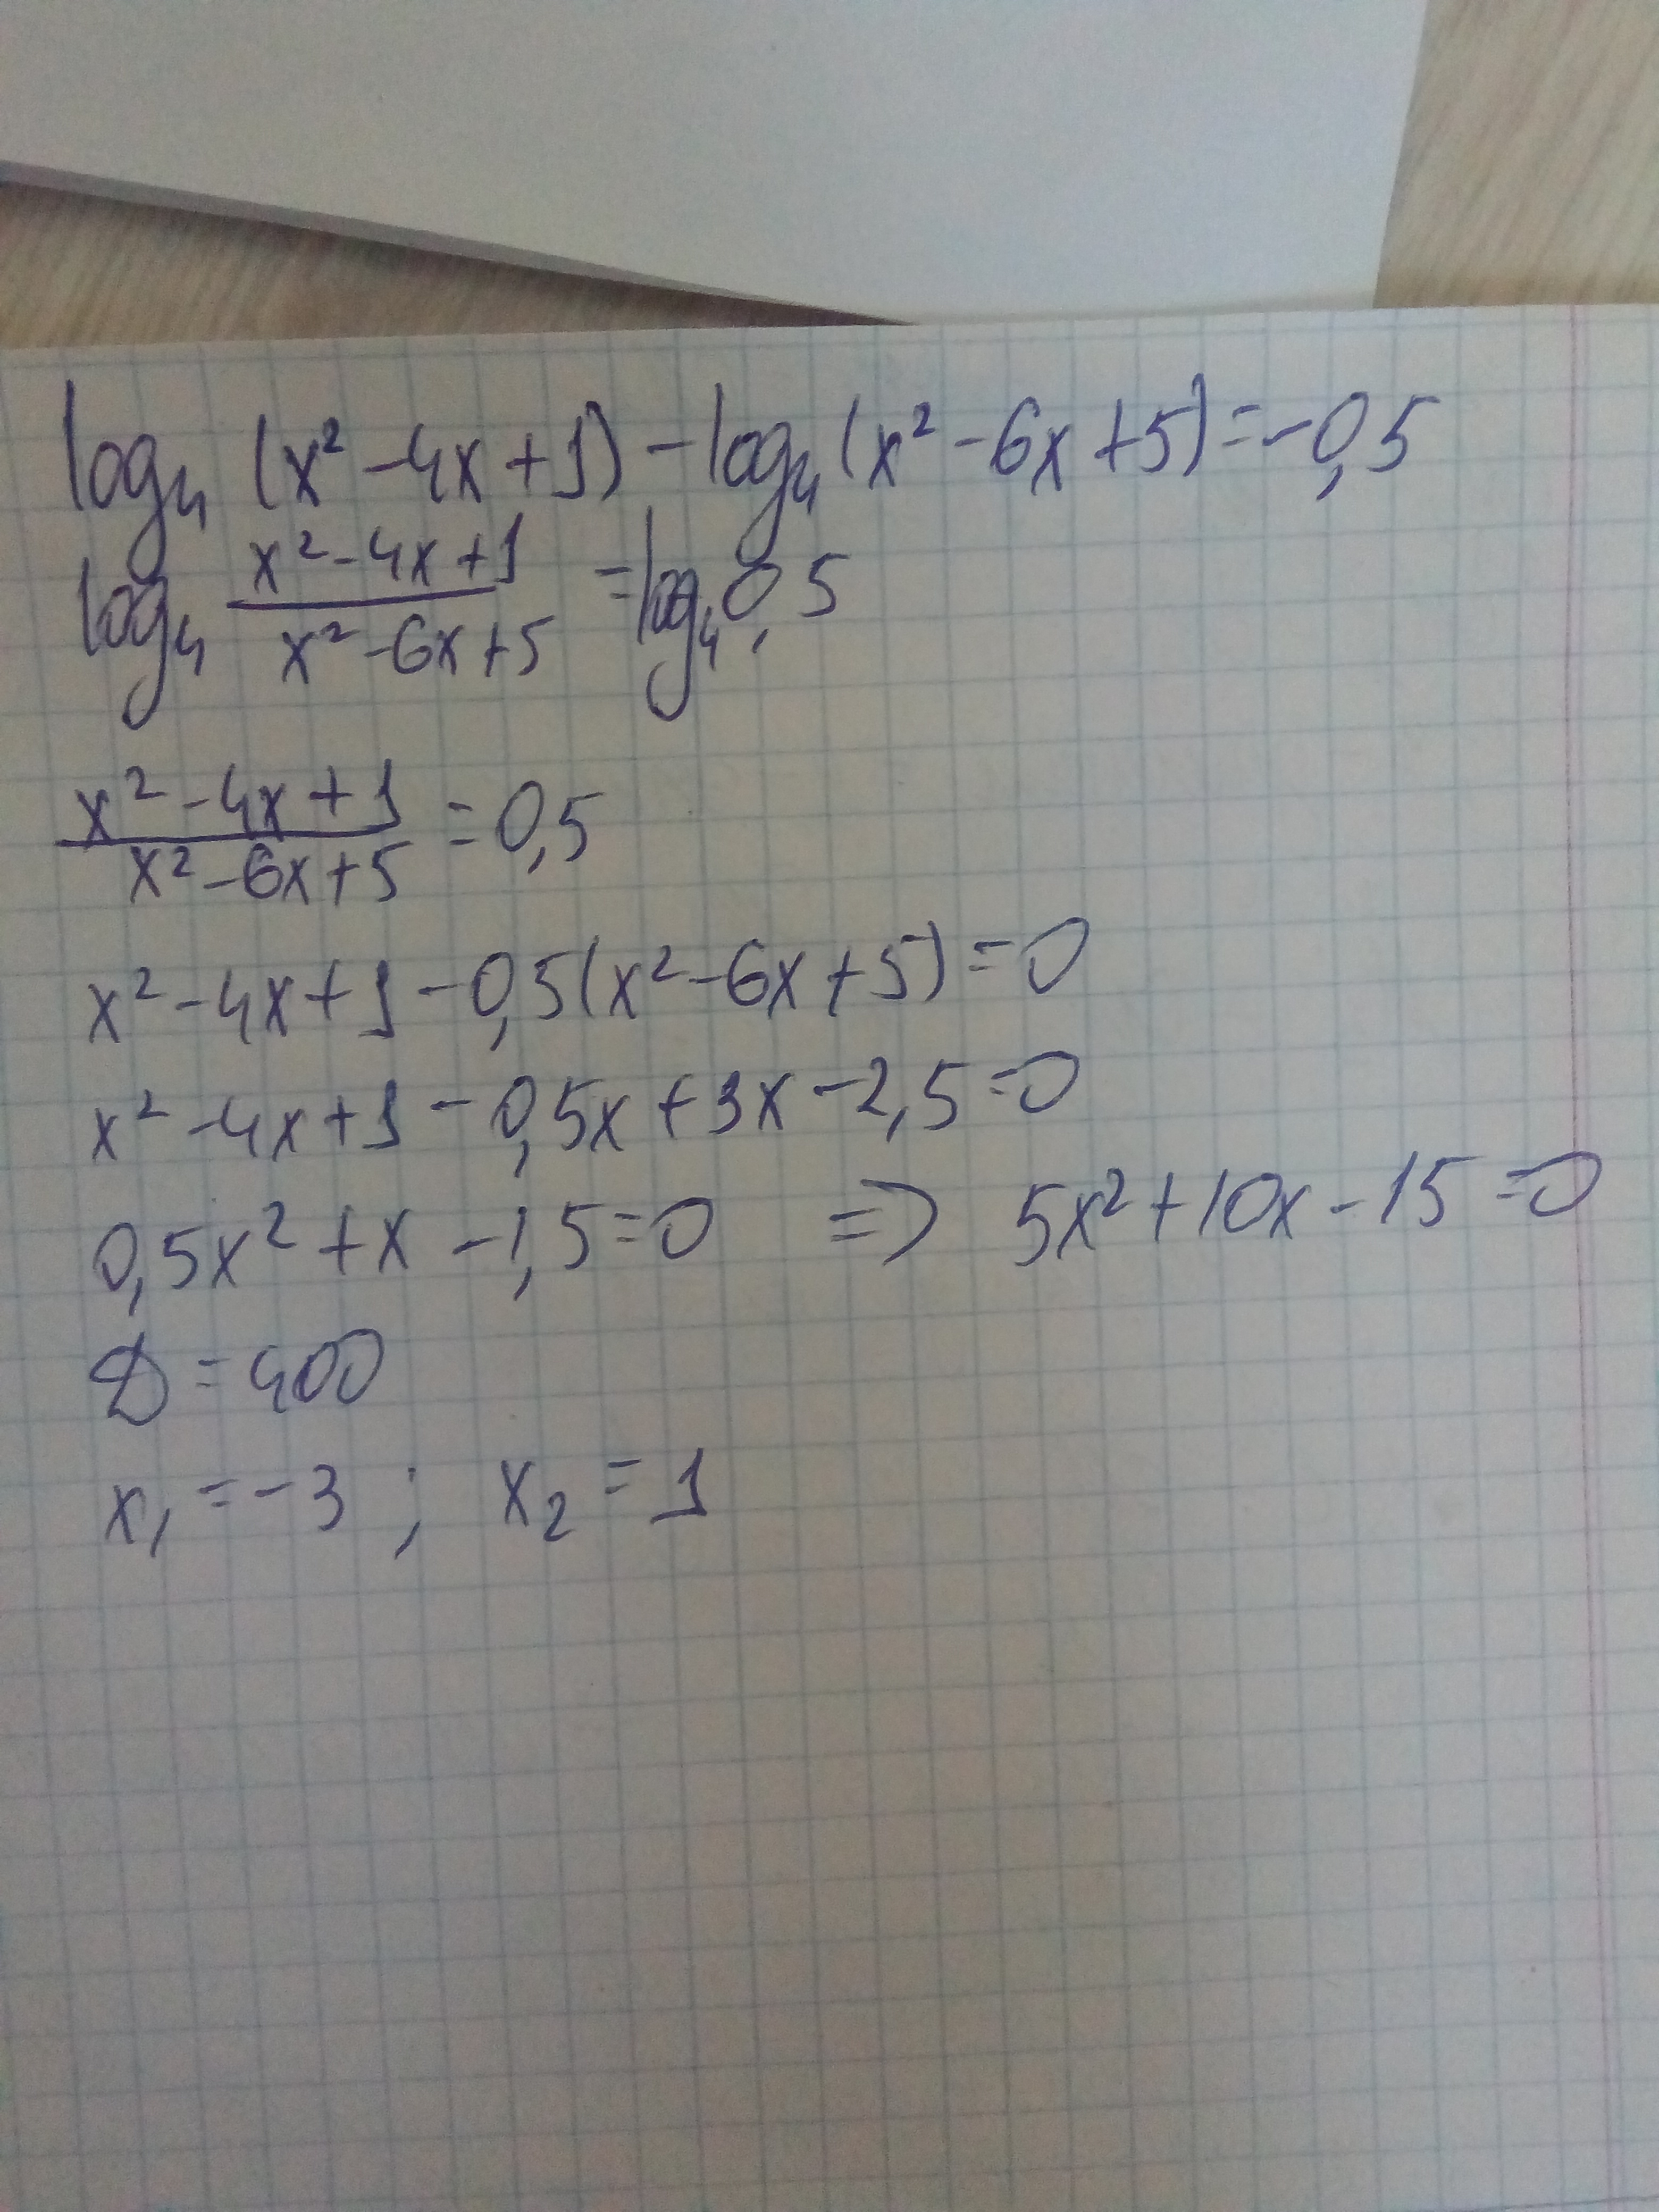 log₄ (x² - 4x + 1) - log₄ (x² - 6x + 5) = -0,5
log₄ (x² - 4x + 1)/(x² - 6x + 5) = log₄ 0,5
(x² - 4x + 1)/(x² - 6x + 5) = 0,5
x² - 4x + 1 - 0,5(x² - 6x + 5) = 0
x² - 4x + 1 - 0,5x + 3x - 2,5 = 0
0,5x² + x - 1,5 = 0 => 5x² + 10x - 15 = 0
D = 400
x₁ = -3 ; x₂ = 1